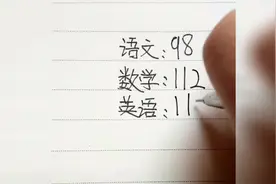 语文：98
数学：112
英语：11